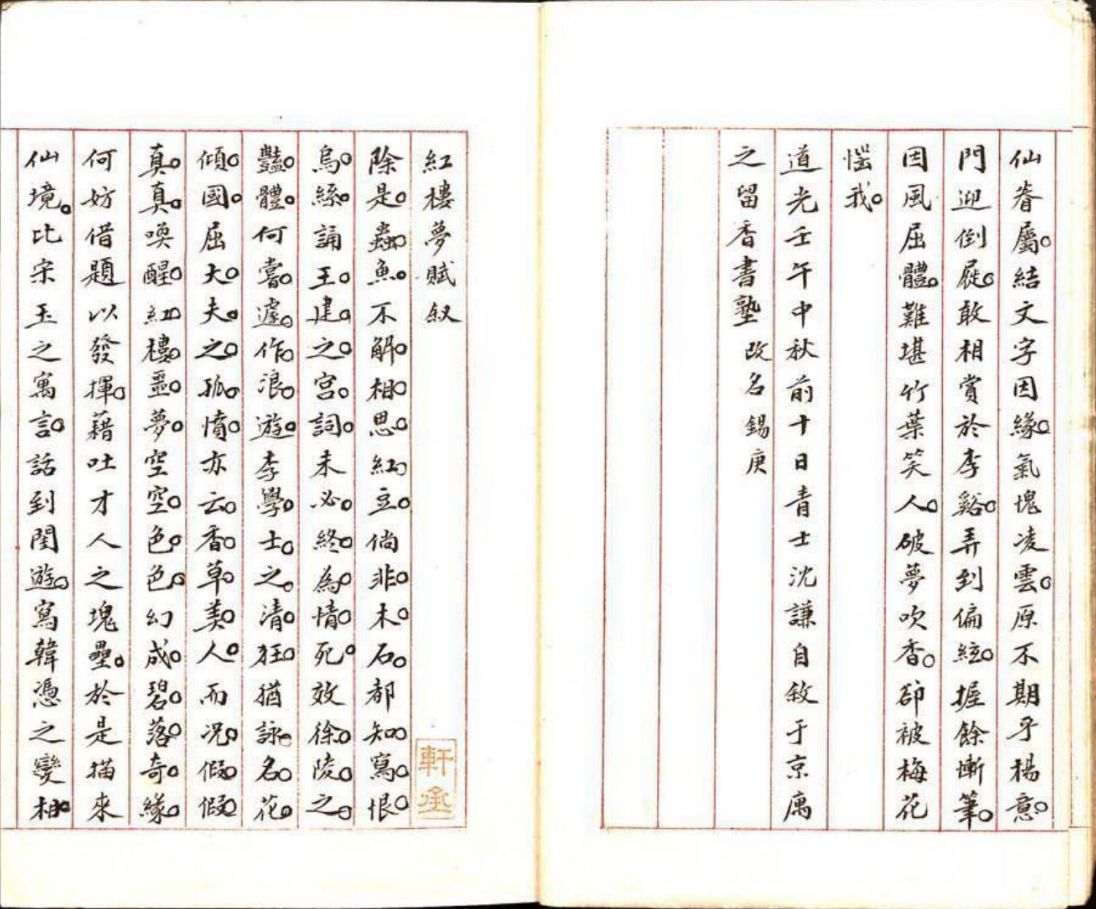 仙眷屬結文字因緣氣塊凌雲原不期乎楊意
門迎倒屣敢相賞於李谿弄到偏絃握餘慚筆
因風屈體難堪竹葉笑人破夢吹香卻被梅花
惱我
道光壬午中秋前十日青士沈謙自敘于京寓
之留香書塾改名錫庚
紅樓夢賦敘
除是蟲魚不解相思紅豆倘非木石都知寫恨
烏絲誦王建之宮詞未必終為情死效徐陵之
豔體何嘗遽作浪遊李學士之清狂猶詠名花
傾國屈大夫之孤憤亦云香草美人而況假假
真真喚醒紅樓噩夢空空色色幻成碧落奇緣
何妨借題以發揮藉吐才人之塊壘於是描來
仙境比宋玉之寓言話到閨遊寫韓憑之變相